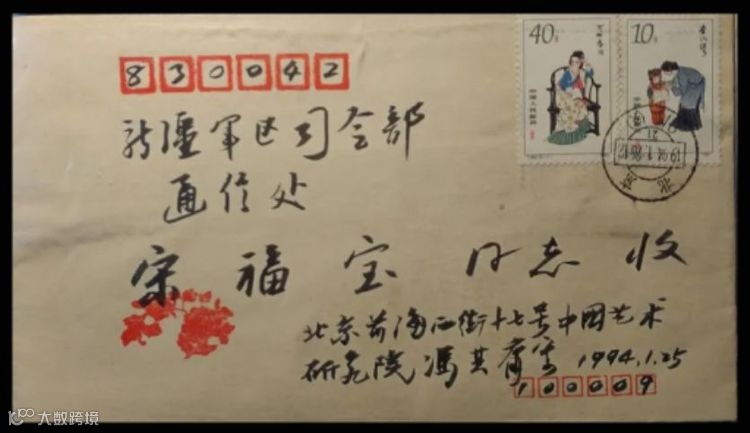 830042
新疆军区司令部
通信处
宋福宝同志收
北京前海西街十七号中国艺术
研究院冯其庸 1994.1.25
100009
40分
10分
中国人民邮政
北京
大数跨境